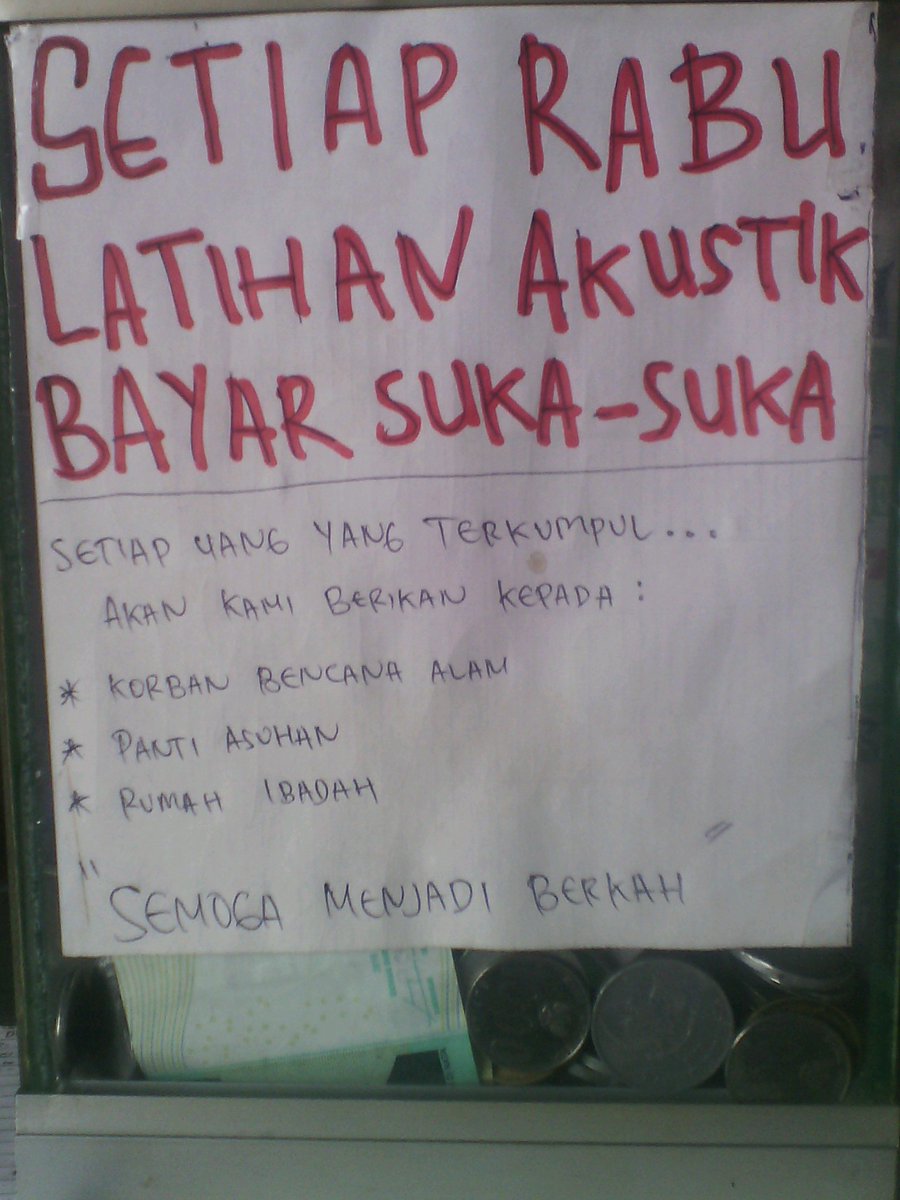 SETIAP RABU.
LATIHAN AKUSTIK
BAYAR SUKA-SUKA
SETIAP UANG YANG TERKUMPUL...
AKAN KAMI BERIKAN KEPADA :
* KORBAN BENCANA ALAM
* PANTI ASUHAN
* RUMAH IBADAH
"SEMOGA MENJADI BERKAH"